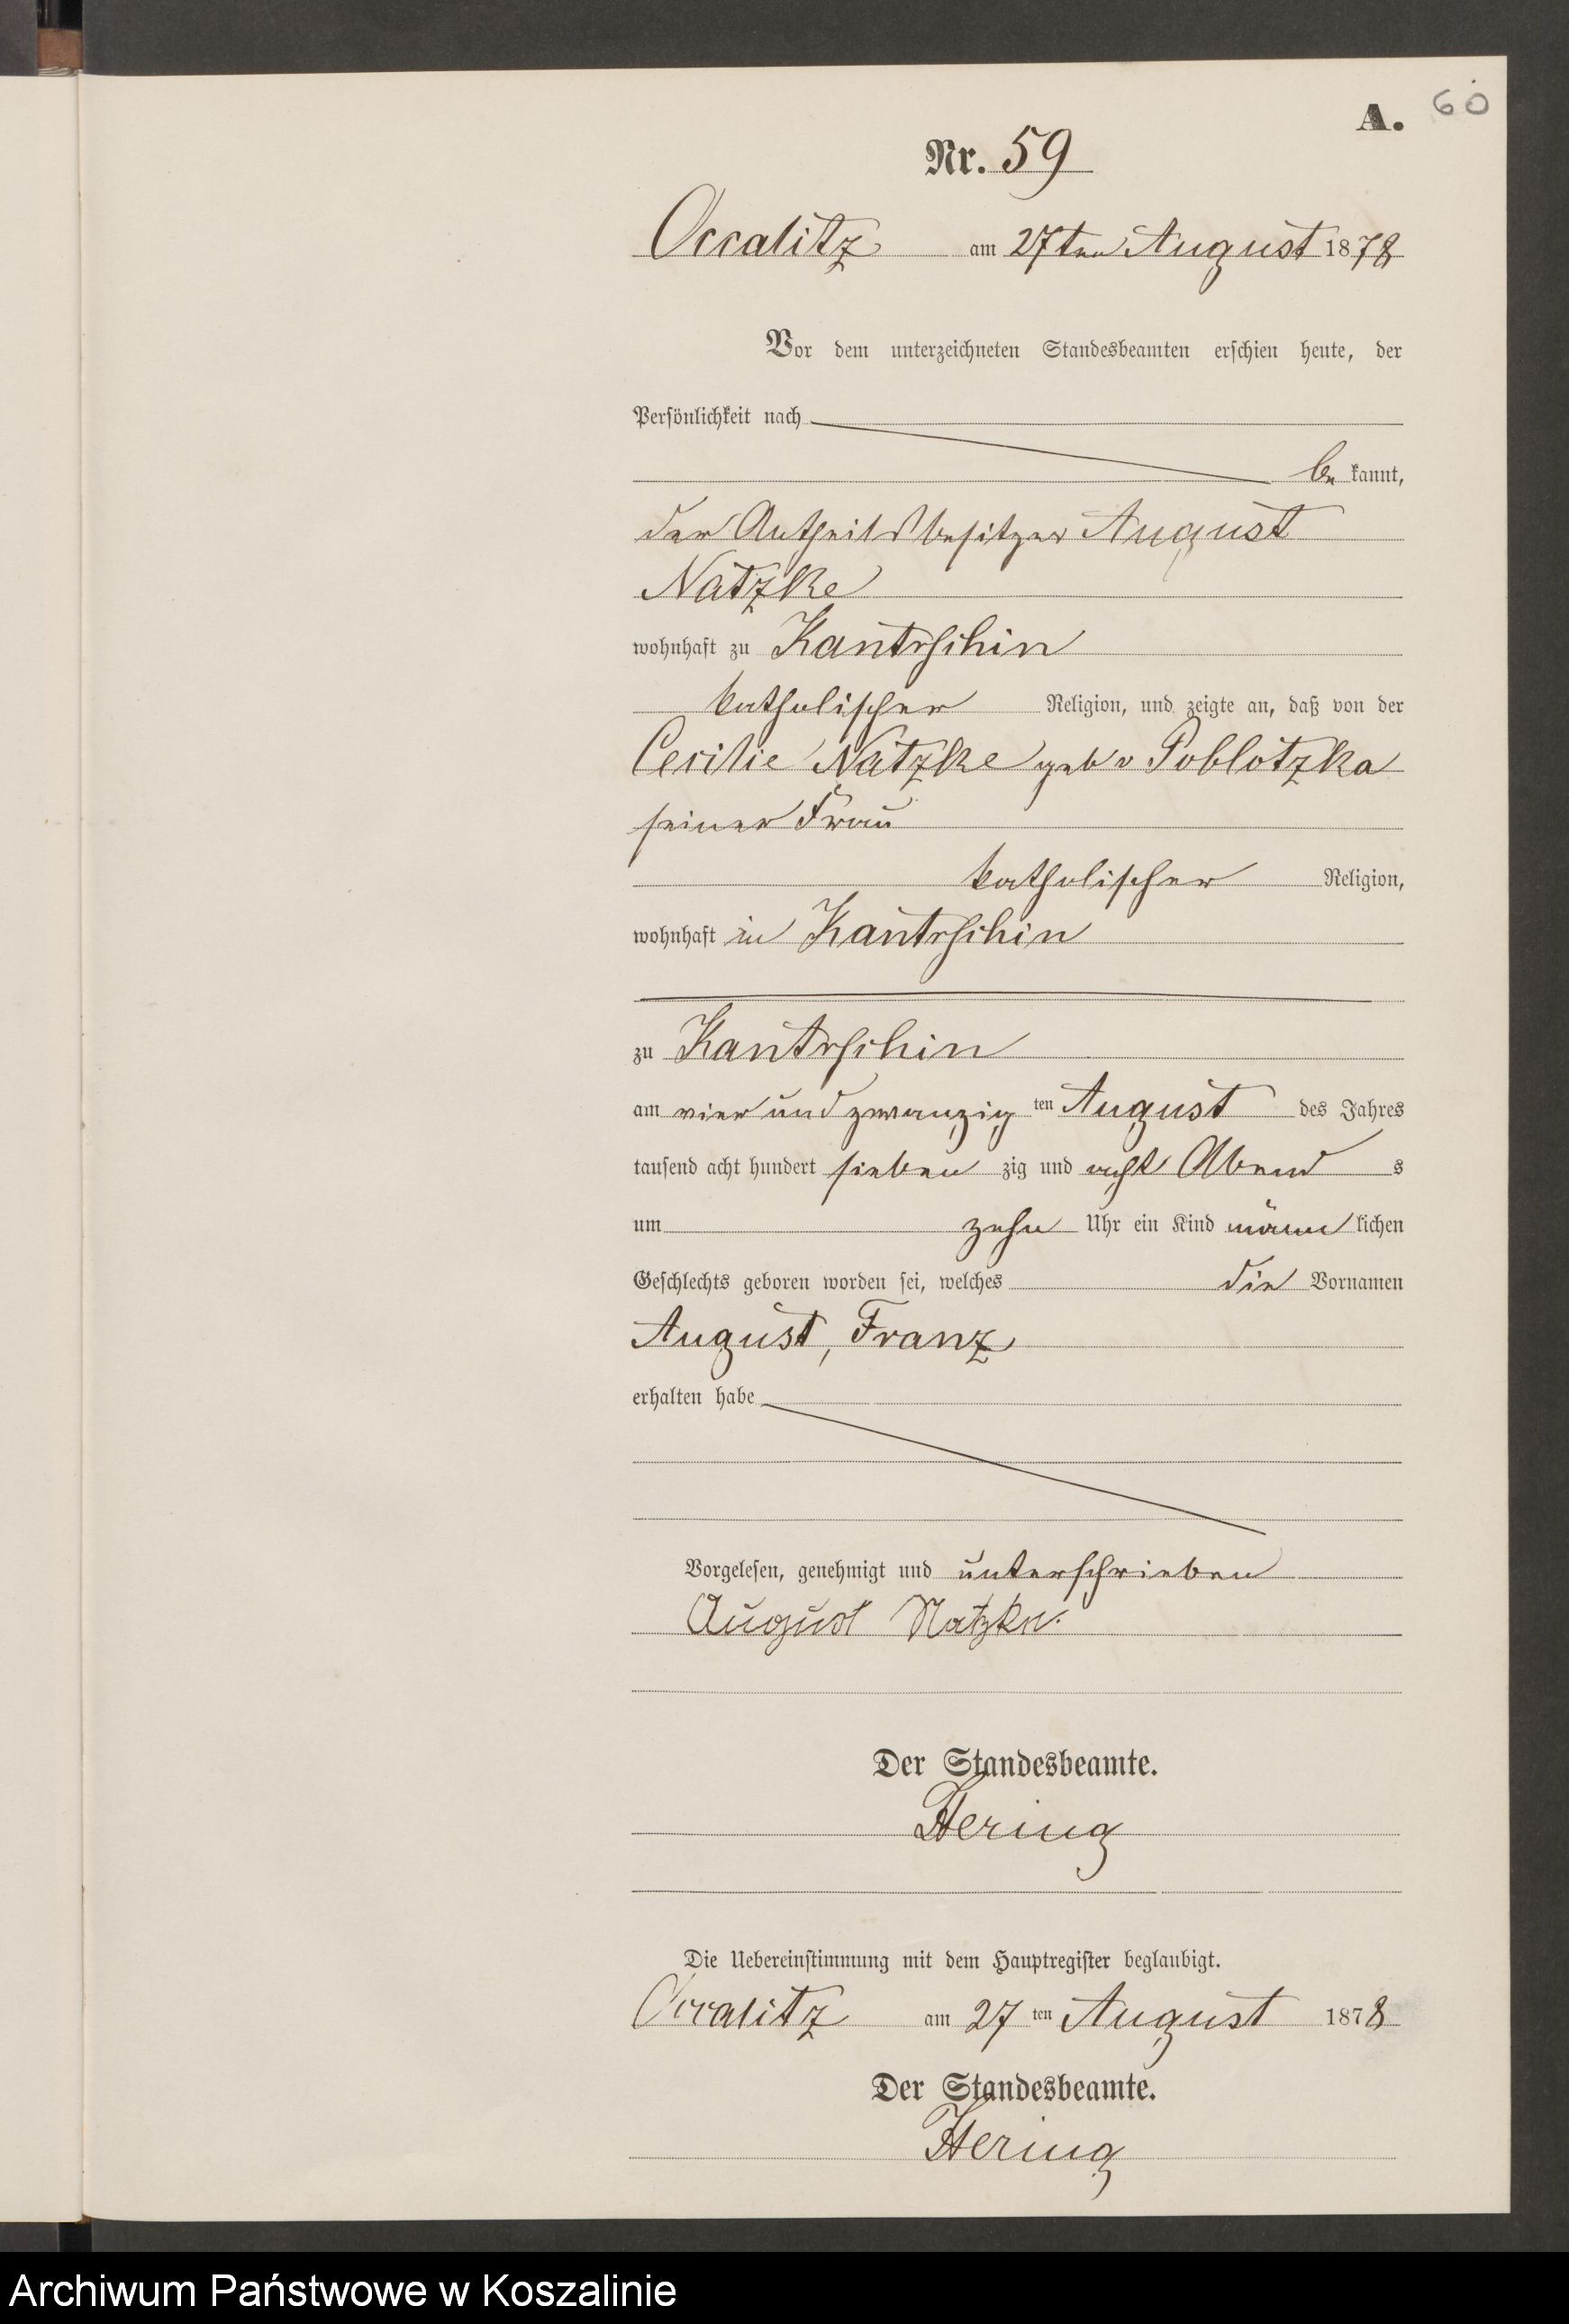 A. 60
Nr. 59
Occalitz am 27ten August 1878
Vor dem unterzeichneten Standesbeamten erschien heute, der
Persönlichkeit nach
be kannt,
der Antheilsbesitzer August
Natzke
wohnhaft zu Kantrschin
katholischer Religion, und zeigte an, daß von der
Cecilie Natzke geb v Poblotzka
seiner Frau
katholischer Religion,
wohnhaft in Kantrschin
zu Kantrschin
am vier und zwanzig ten August des Jahres
tausend acht hundert sieben zig und acht Abend s
um zehn Uhr ein Kind männ lichen
Geschlechts geboren worden sei, welches die Vornamen
August, Franz
erhalten habe
Vorgelesen, genehmigt und unterschrieben
August Natzke.
Der Standesbeamte.
Hering
Die Uebereinstimmung mit dem Hauptregister beglaubigt.
Occalitz am 27 ten August 1878
Der Standesbeamte.
Hering
Archiwum Państwowe w Koszalinie